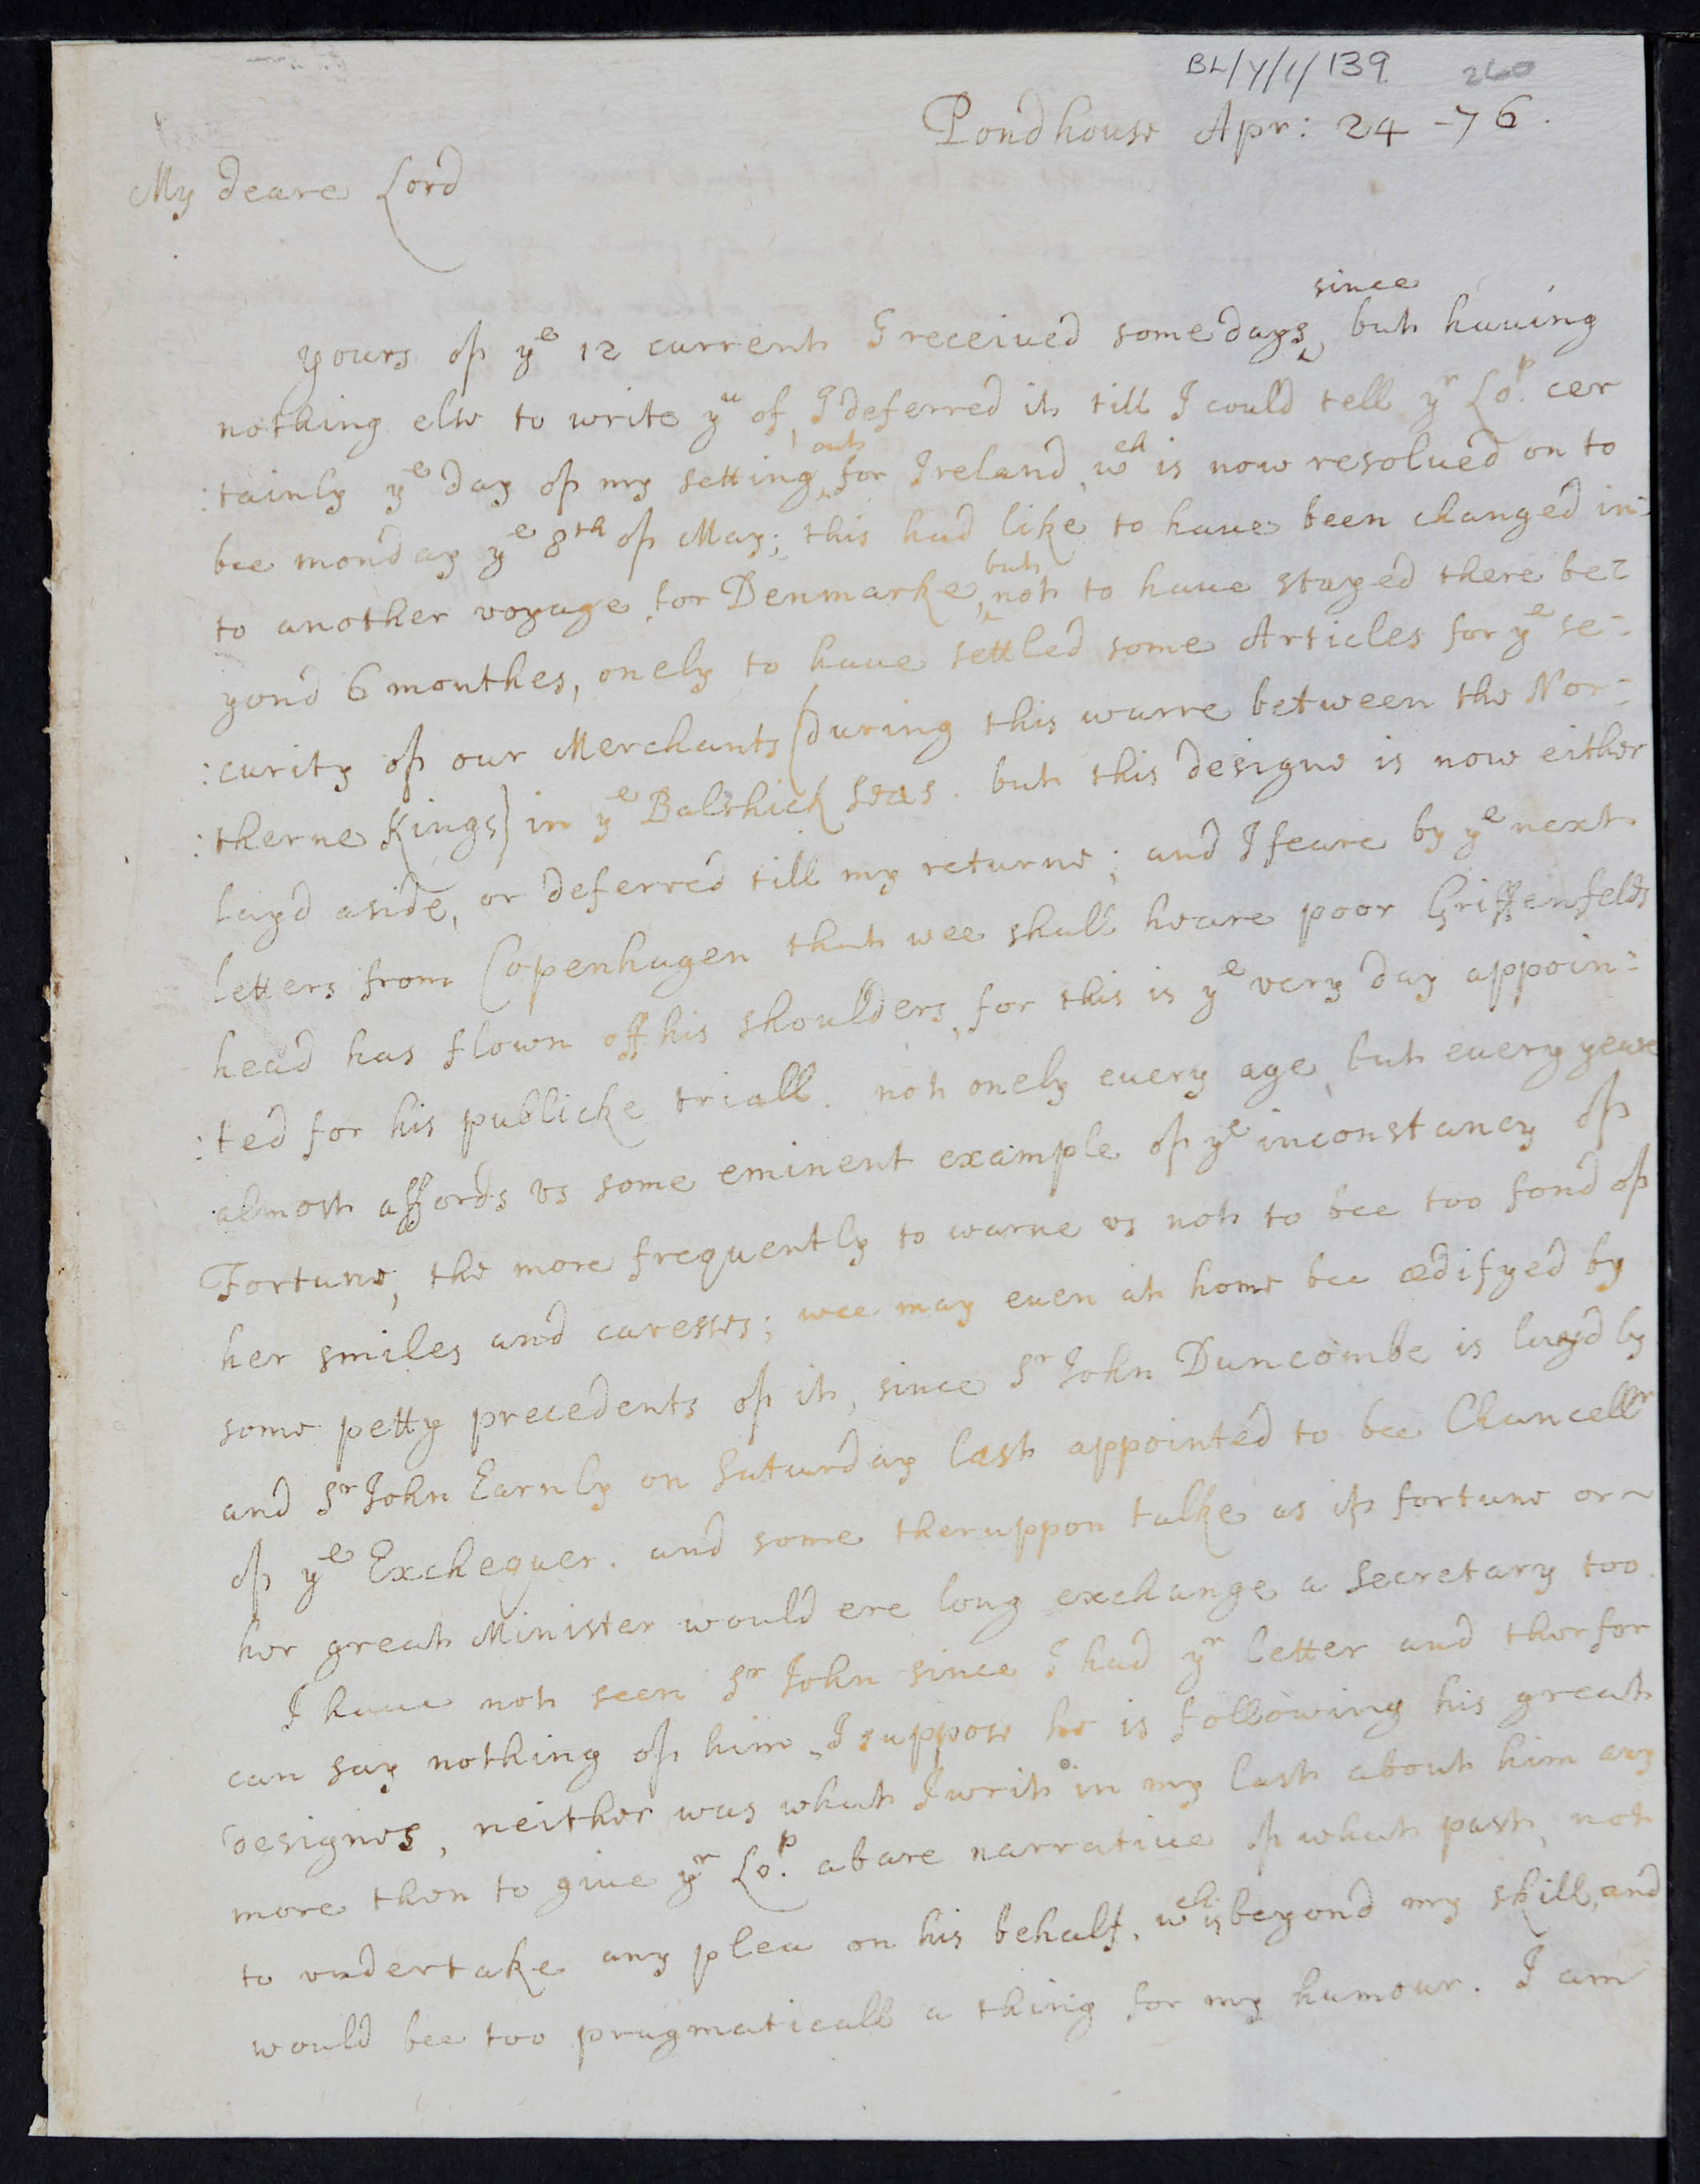 BL/Y/1/139 260
Pondhouse Apr: 24 -76.
My deare Lord
since
yours of ye 12 current I received some days, but hauing
nothing else to write yu of, I deferred it till I could tell yr Lop. cer
out
:tainly ye day of my setting for Ireland, wch is now resolued on to
bee monday ye 8th of May; this had like to haue been changed in:
but
to another voyage for Denmarke, not to haue stayed there be=
yond 6 monthes, onely to haue settled some Articles for ye se=
:curity of our Merchants (during this warre between the Nor=
:therne Kings) in ye Balthick seas. but this designe is now either
layd aside, or deferred till my returne; and I feare by ye next
letters from Copenhagen that wee shall heare poor Griffenfelds
head has flown off his shoulders, for this is ye very day appoin=
:ted for his publicke triall. not onely euery age, but euery yeare
almost affords vs some eminent example of ye inconstancy of
Fortune, the more frequently to warne vs not to bee too fond of
her smiles and caresses; wee may euen at home bee ædifyed by
some petty precedents of it, since Sr John Duncombe is layd by
and Sr John Earnly on Saturday last appointed to bee Chancellr
of ye Exchequer. and some theruppon talke as if fortune or
her great Minister would ere long exchange a Secretary too.
I haue not seen Sr John since I had yr letter and therfor
can say nothing of him, I suppose he is following his great
designes, neither was what I writ in my last about him any
more then to giue yr Lop. a bare narratiue of what past, not
to vndertake any plea on his behalf, wch is beyond my skill, and
would bee too pragmaticall a thing for my humour. I am